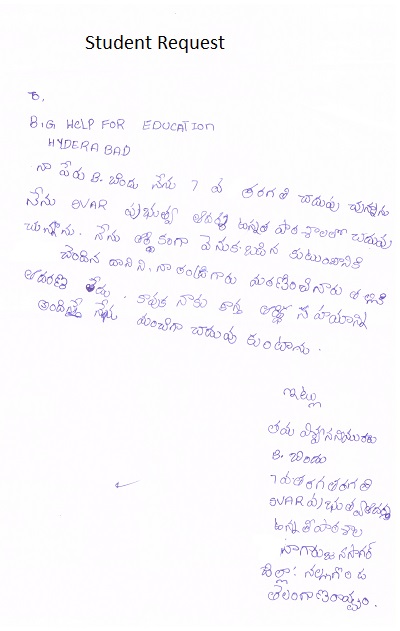 Student Request
To,
BIG HELP FOR EDUCATION
HYDERABAD
నా పేరు B. బిందు నేను 7 వ తరగతి చదువు చున్నాను
నేను SVAR ప్రభుత్వ ఆదర్శ ఉన్నత పాఠశాలలో చదువు
చున్నాను. నేను ఆర్థికంగా వెనుకబడిన కుటుంబానికి
చెందిన దానిని. నా తండ్రిగారు మరణించినారు
ఆదరణ లేదు. కావున నాకు కాస్త ఆర్థిక సహయాన్ని
అందిస్తే నేను మంచిగా చదువు కుంటాను.
ఇట్లు
తమ
B. బిందు
7 వ తరగతి
SVAR ప్రభుత్వ ఆదర్శ
ఉన్నత పాఠశాల
నాగార్జునసాగర్
జిల్లా: నల్గొండ
తెలంగాణ రాష్ట్రం.